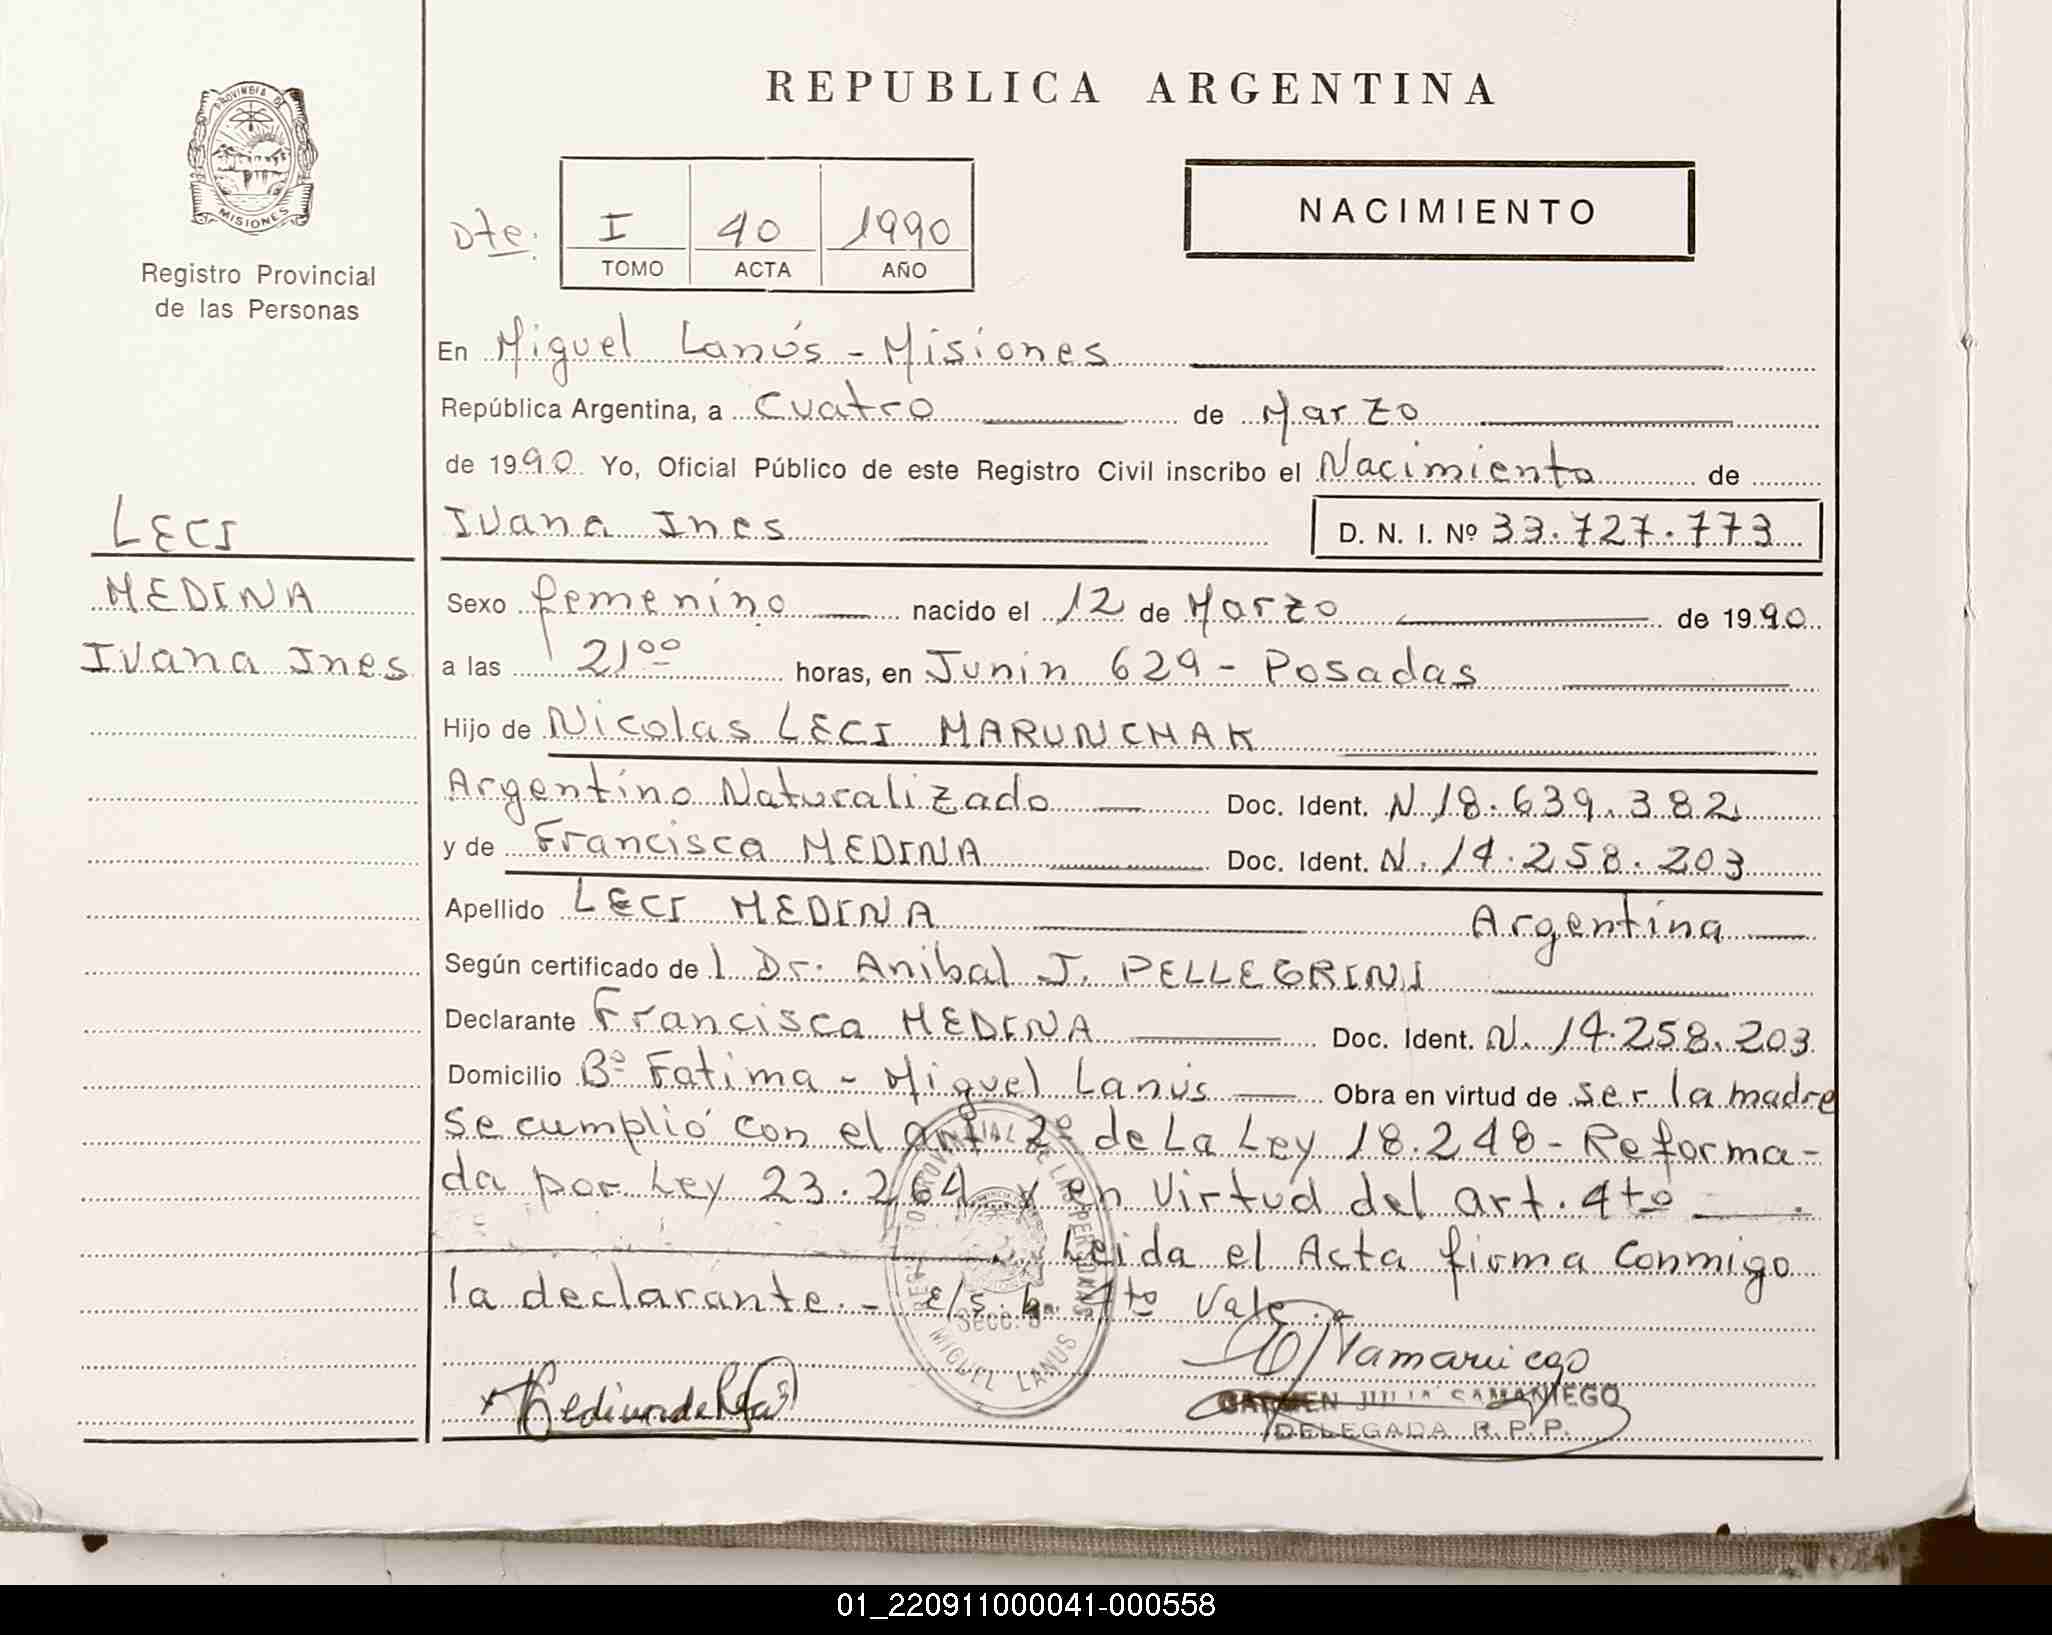 REPUBLICA ARGENTINA
PROVINCIA DE
MISIONES
Registro Provincial
de las Personas
Dte: I 40 1990
TOMO ACTA AÑO
NACIMIENTO
En Miguel Lanús - Misiones
República Argentina, a Cuatro de Marzo
de 1990. Yo, Oficial Público de este Registro Civil inscribo el Nacimiento de
LECI
Ivana Ines D. N. I. Nº 33.727.773
MEDINA
Sexo femenino nacido el 12 de Marzo de 1990
Ivana Ines
a las 21ºº horas, en Junin 629 - Posadas
Hijo de Nicolas LECI MARUNCHAK
Argentino Naturalizado Doc. Ident. N 18.639.382
y de Francisca MEDINA Doc. Ident. N. 14.258.203
Apellido LECI MEDINA Argentina
Según certificado de l Dr. Anibal J. PELLEGRINI
Declarante Francisca MEDINA Doc. Ident. N. 14.258.203
Domicilio Bº Fatima - Miguel Lanús Obra en virtud de ser la madre
Se cumplió con el art. 2º de La Ley 18.248 - Reforma-
da por Ley 23.264 y en Virtud del art. 4to
Leida el Acta firma Conmigo
la declarante. - E/S. 4to Vale.
REGISTRO PROVINCIAL DE LAS PERSONAS
Secc. 5
MIGUEL LANUS
Samaniego
CARMEN JULIA SAMANIEGO
DELEGADA R.P.P.
01_220911000041-000558